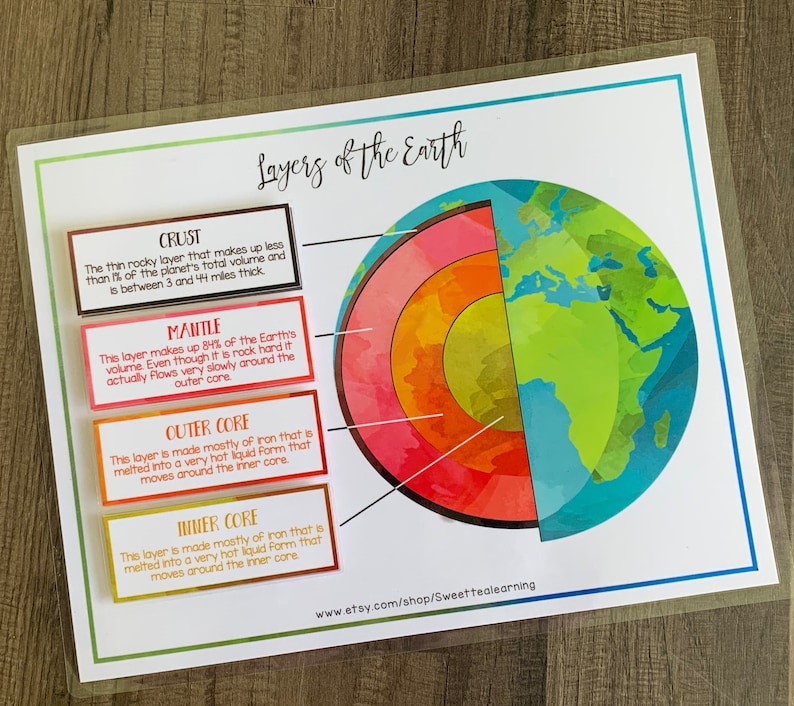 Layers of the Earth
CRUST
The thin rocky layer that makes up less
than 1% of the planet's total volume and
is between 3 and 44 miles thick.
MANTLE
This layer makes up 84% of the Earth's
volume. Even though it is rock hard it
actually flows very slowly around the
outer core.
OUTER CORE
This layer is made mostly of iron that is
melted into a very hot liquid form that
moves around the inner core.
INNER CORE
This layer is made mostly of iron that is
melted into a very hot liquid form that
moves around the inner core.
www.etsy.com/shop/Sweettealearning